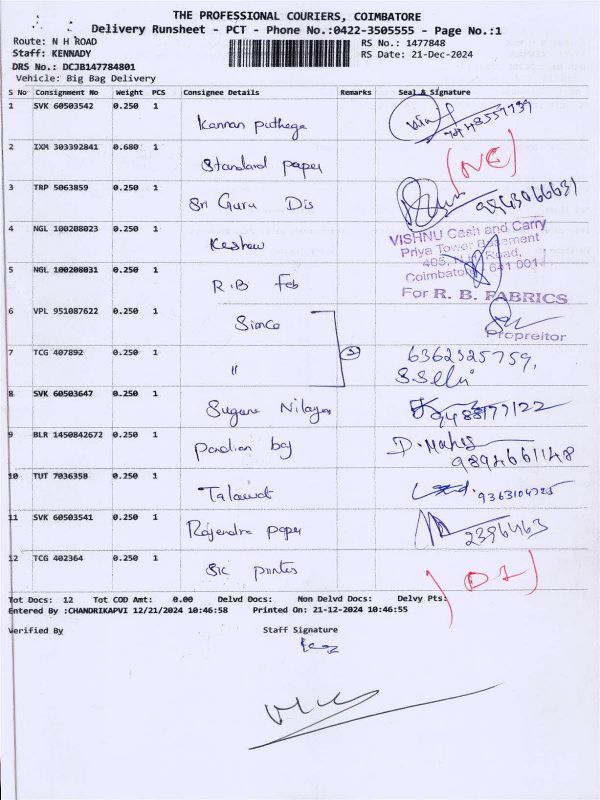 THE PROFESSIONAL COURIERS, COIMBATORE
Delivery Runsheet - PCT - Phone No.:0422-3505555 - Page No.:1
Route: N H ROAD RS No.: 1477848
Staff: KENNADY RS Date: 21-Dec-2024
DRS No.: DCJB147784801
Vehicle: Big Bag Delivery
S No Consignment No Weight PCS Consignee Details Remarks Seal & Signature
1 SVK 60503542 0.250 1 Kannan puthega
2 IXM 303392841 0.680 1 Standard paper (NC)
3 TRP 5063859 0.250 1 Sri Guru Dis
4 NGL 100208023 0.250 1 Keshav
VISHNU Cash and Carry
Priya Tower Basement
Road,
5 NGL 100208031 0.250 1 R.B Feb
Coimbatore 641 001
For R. B. FABRICS
6 VPL 951087622 0.250 1 Simco
Propreitor
7 TCG 407892 0.250 1 " 6362525759,
8 SVK 60503647 0.250 1 Suguna Nilayam 9488177122
9 BLR 1450842672 0.250 1 Pandian bag D. Mahes
9894661148
10 TUT 7036358 0.250 1 Talawat 9363104725
11 SVK 60503541 0.250 1 Rajendra paper 2396463
12 TCG 402364 0.250 1 Sk printes (DL)
Tot Docs: 12 Tot COD Amt: 0.00 Delvd Docs: Non Delvd Docs: Delvy Pts:
Entered By :CHANDRIKAPVI 12/21/2024 10:46:58 Printed On: 21-12-2024 10:46:55
Verified By Staff Signature